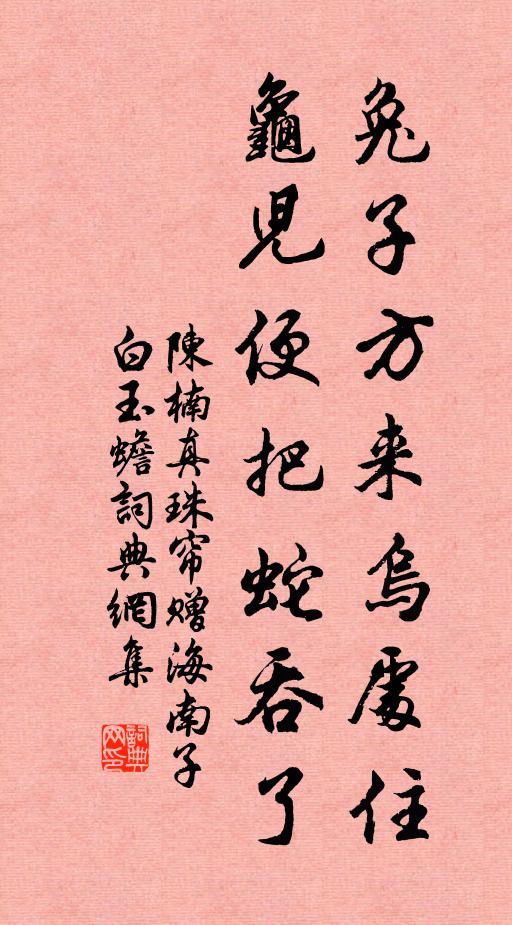 兔子方来烏處住
龜児便把蛇吞了
陳楠真珠帘赠海南子
白玉蟾詞典網集
詞典网印